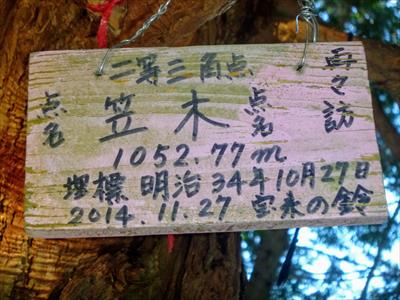 二等三角点
点名
笠木
点名
再々訪
1052.77m
埋標 明治34年10月27日
2014.11.27 宝来の鈴